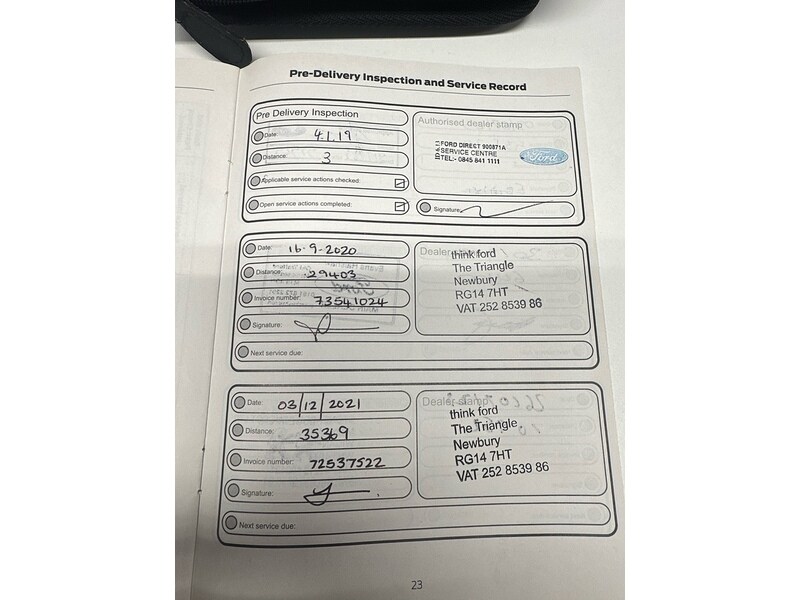 Pre-Delivery Inspection and Service Record
Pre Delivery Inspection
Date: 4.1.19
Distance: 3
Applicable service actions checked:
Open service actions completed:
Authorised dealer stamp
FORD DIRECT 900871A
SERVICE CENTRE
TEL:- 0845 841 1111
Ford
Signature:
Date: 16-9-2020
Distance: 29403
Invoice number: 73541024
Signature:
Next service due:
Dealer stamp
think ford
The Triangle
Newbury
RG14 7HT
VAT 252 8539 86
Date: 03/12/2021
Distance: 35369
Invoice number: 72537522
Signature:
Next service due:
Dealer stamp
think ford
The Triangle
Newbury
RG14 7HT
VAT 252 8539 86
23